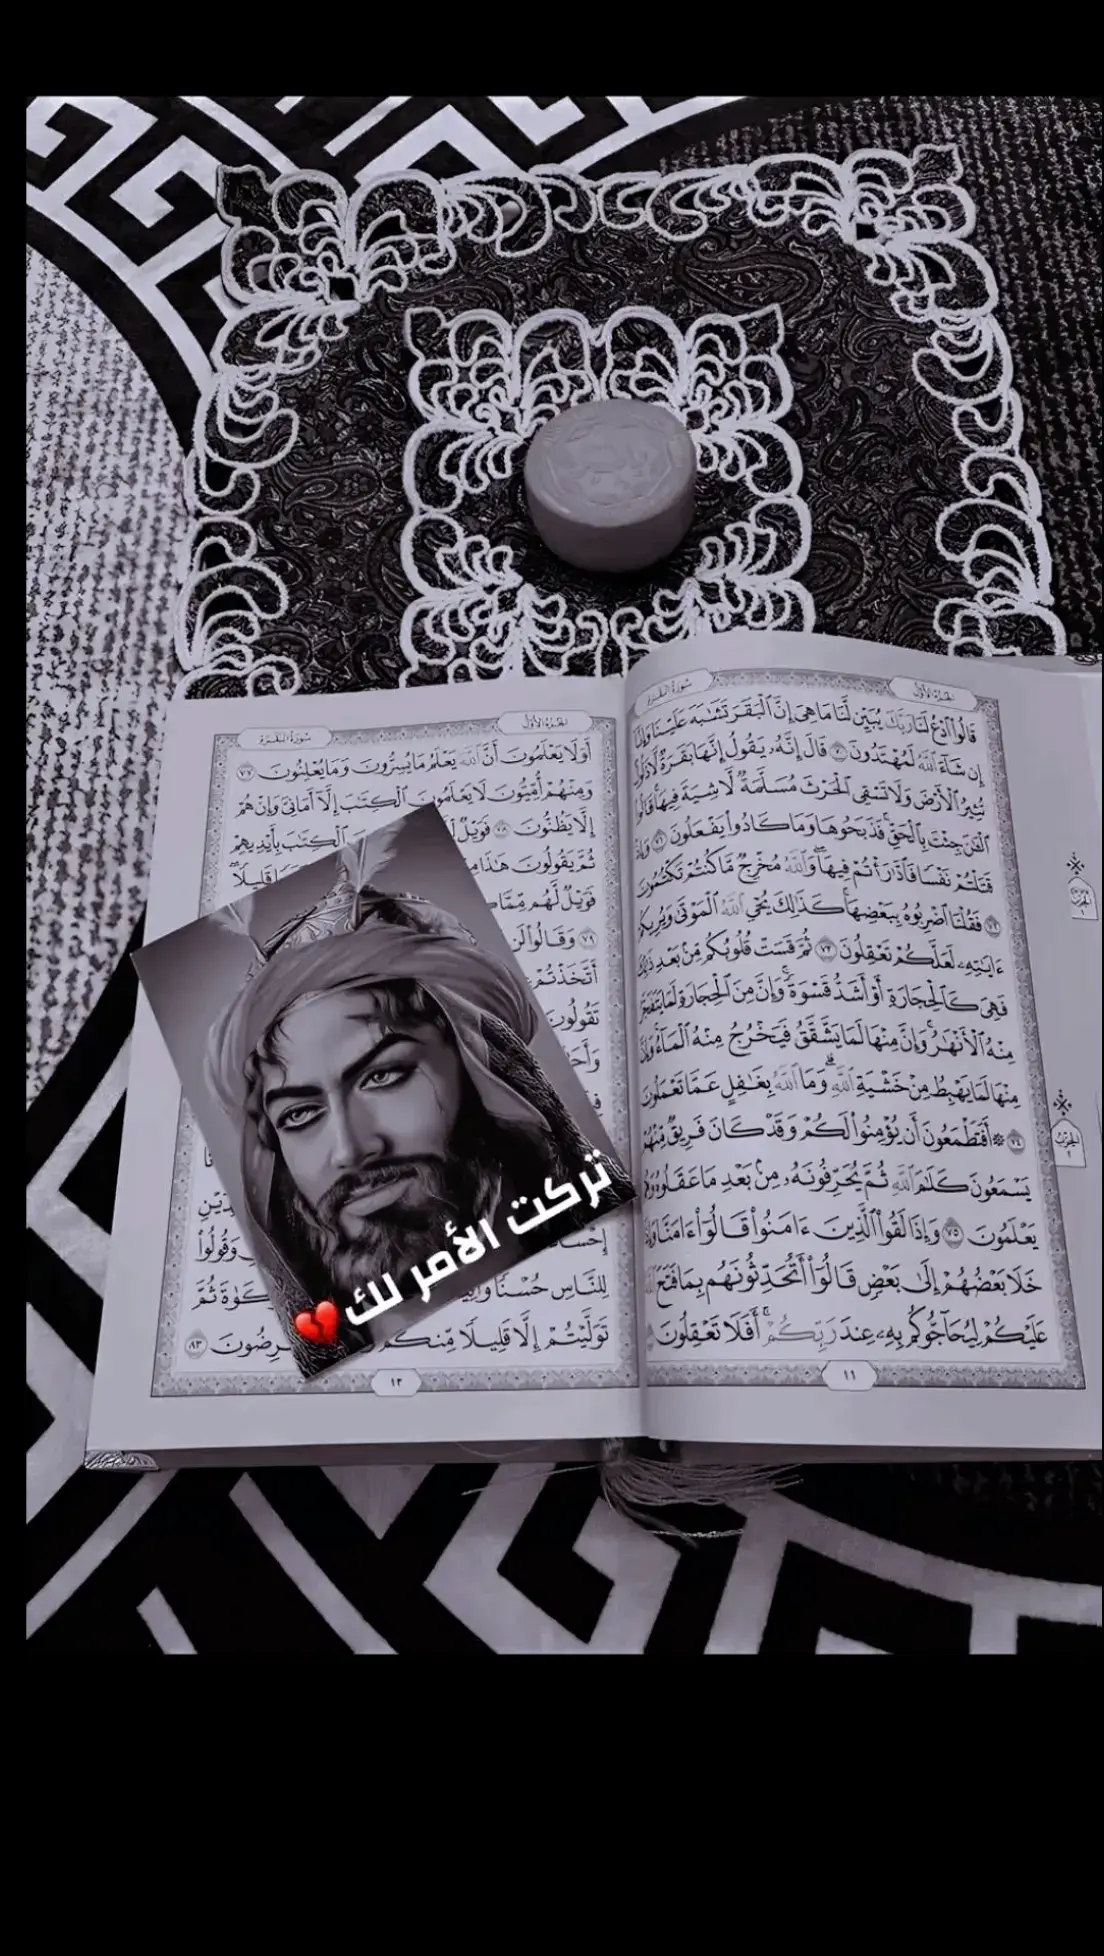 سُورَةُ البَقَرَة
الجُزءُ الأَوَّل
قَالُوا۟ ٱدْعُ لَنَا رَبَّكَ يُبَيِّن لَّنَا مَا هِىَ إِنَّ ٱلْبَقَرَ تَشَٰبَهَ عَلَيْنَا وَإِنَّآ
إِن شَآءَ ٱللَّهُ لَمُهْتَدُونَ ٧٠ قَالَ إِنَّهُۥ يَقُولُ إِنَّهَا بَقَرَةٌ لَّا ذَلُولٌ
تُثِيرُ ٱلْأَرْضَ وَلَا تَسْقِى ٱلْحَرْثَ مُسَلَّمَةٌ لَّا شِيَةَ فِيهَا قَالُوا۟
ٱلْـَٰٔنَ جِئْتَ بِٱلْحَقِّ فَذَبَحُوهَا وَمَا كَادُوا۟ يَفْعَلُونَ ٧١ وَإِذْ
قَتَلْتُمْ نَفْسًا فَٱدَّٰرَْٰٔتُمْ فِيهَا وَٱللَّهُ مُخْرِجٌ مَّا كُنتُمْ تَكْتُمُونَ
٧٢ فَقُلْنَا ٱضْرِبُوهُ بِبَعْضِهَا كَذَٰلِكَ يُحْىِ ٱللَّهُ ٱلْمَوْتَىٰ وَيُرِيكُمْ
ءَايَٰتِهِۦ لَعَلَّكُمْ تَعْقِلُونَ ٧٣ ثُمَّ قَسَتْ قُلُوبُكُم مِّنۢ بَعْدِ ذَٰلِكَ
فَهِىَ كَٱلْحِجَارَةِ أَوْ أَشَدُّ قَسْوَةً وَإِنَّ مِنَ ٱلْحِجَارَةِ لَمَا يَتَفَجَّرُ
مِنْهُ ٱلْأَنْهَٰرُ وَإِنَّ مِنْهَا لَمَا يَشَّقَّقُ فَيَخْرُجُ مِنْهُ ٱلْمَآءُ وَإِنَّ
مِنْهَا لَمَا يَهْبِطُ مِنْ خَشْيَةِ ٱللَّهِ وَمَا ٱللَّهُ بِغَٰفِلٍ عَمَّا تَعْمَلُونَ
٧٤ ۞ أَفَتَطْمَعُونَ أَن يُؤْمِنُوا۟ لَكُمْ وَقَدْ كَانَ فَرِيقٌ مِّنْهُمْ
يَسْمَعُونَ كَلَٰمَ ٱللَّهِ ثُمَّ يُحَرِّفُونَهُۥ مِنۢ بَعْدِ مَا عَقَلُوهُ وَهُمْ
يَعْلَمُونَ ٧٥ وَإِذَا لَقُوا۟ ٱلَّذِينَ ءَامَنُوا۟ قَالُوٓا۟ ءَامَنَّا وَإِذَا
خَلَا بَعْضُهُمْ إِلَىٰ بَعْضٍ قَالُوٓا۟ أَتُحَدِّثُونَهُم بِمَا فَتَحَ
عَلَيْكُمْ لِيُحَآجُّوكُم بِهِۦ عِندَ رَبِّكُمْ أَفَلَا تَعْقِلُونَ
١١
الحِزْب
١
الحِزْب
٢
سُورَةُ البَقَرَة
الجُزءُ الأَوَّل
أَوَلَا يَعْلَمُونَ أَنَّ ٱللَّهَ يَعْلَمُ مَا يُسِرُّونَ وَمَا يُعْلِنُونَ ٧٧
وَمِنْهُمْ أُمِّيُّونَ لَا يَعْلَمُونَ ٱلْكِتَٰبَ إِلَّآ أَمَانِىَّ وَإِنْ هُمْ
إِلَّا يَظُنُّونَ ٧٨ فَوَيْلٌ ٱلْكِتَٰبَ بِأَيْدِيهِمْ
ثُمَّ يَقُولُونَ هَٰذَا قَلِيلًا
فَوَيْلٌ لَّهُم مِّمَّا
٧٩ وَقَالُوا۟ لَن
أَتَّخَذْتُمْ
تَقُولُونَ
إِحْسَانًا وَقُولُوا۟
لِلنَّاسِ حُسْنًا ثُمَّ
تَوَلَّيْتُمْ إِلَّا قَلِيلًا مِّنكُمْ ٨٣
١٢
تركت الأمر لك💔